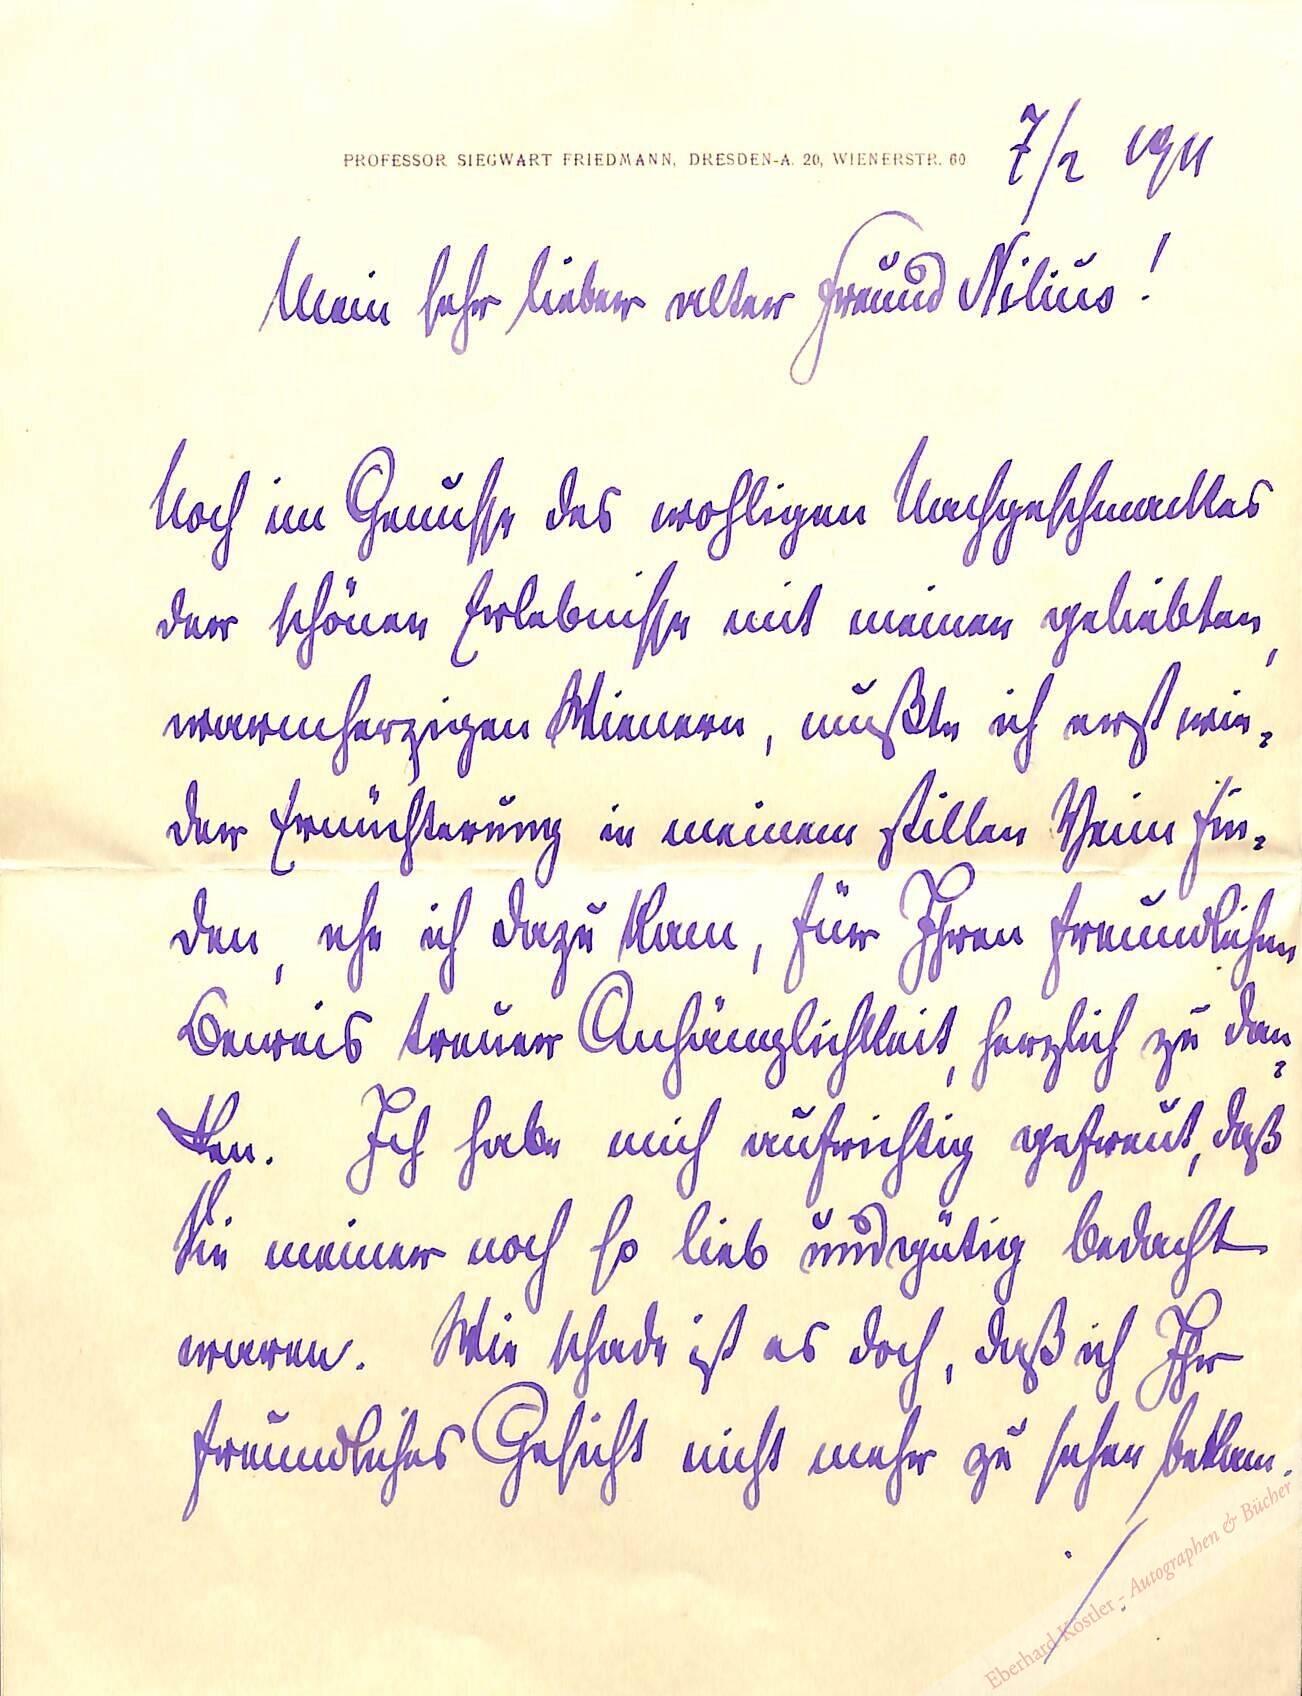 PROFESSOR SIEGWART FRIEDMANN, DRESDEN-A. 20, WIENERSTR. 60
7/2 1911
Mein sehr lieber alter Freund Nilius!
Noch im Genusse des wohligen Nachgeschmackes
der schönen Erlebnisse mit meinen geliebten,
warmherzigen Wienern, mußte ich erst wie-
der Ernüchterung in meinem stillen Heim fin-
den, ehe ich dazu kam, für Ihren freundlichen
Beweis treuer Anhänglichkeit, herzlich zu dan-
ken. Ich habe mich aufrichtig gefreut, daß
Sie meiner noch so lieb und gütig bedacht
waren. Wie schade ist es doch, daß ich Ihr
freundliches Gesicht nicht mehr zu sehen bekam.
./.
Eberhard Köstler - Autographen & Bücher